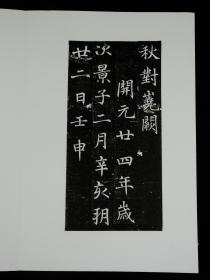 秋對闕
開元廿四年歲
次景子二月辛亥朔
廿二日壬申